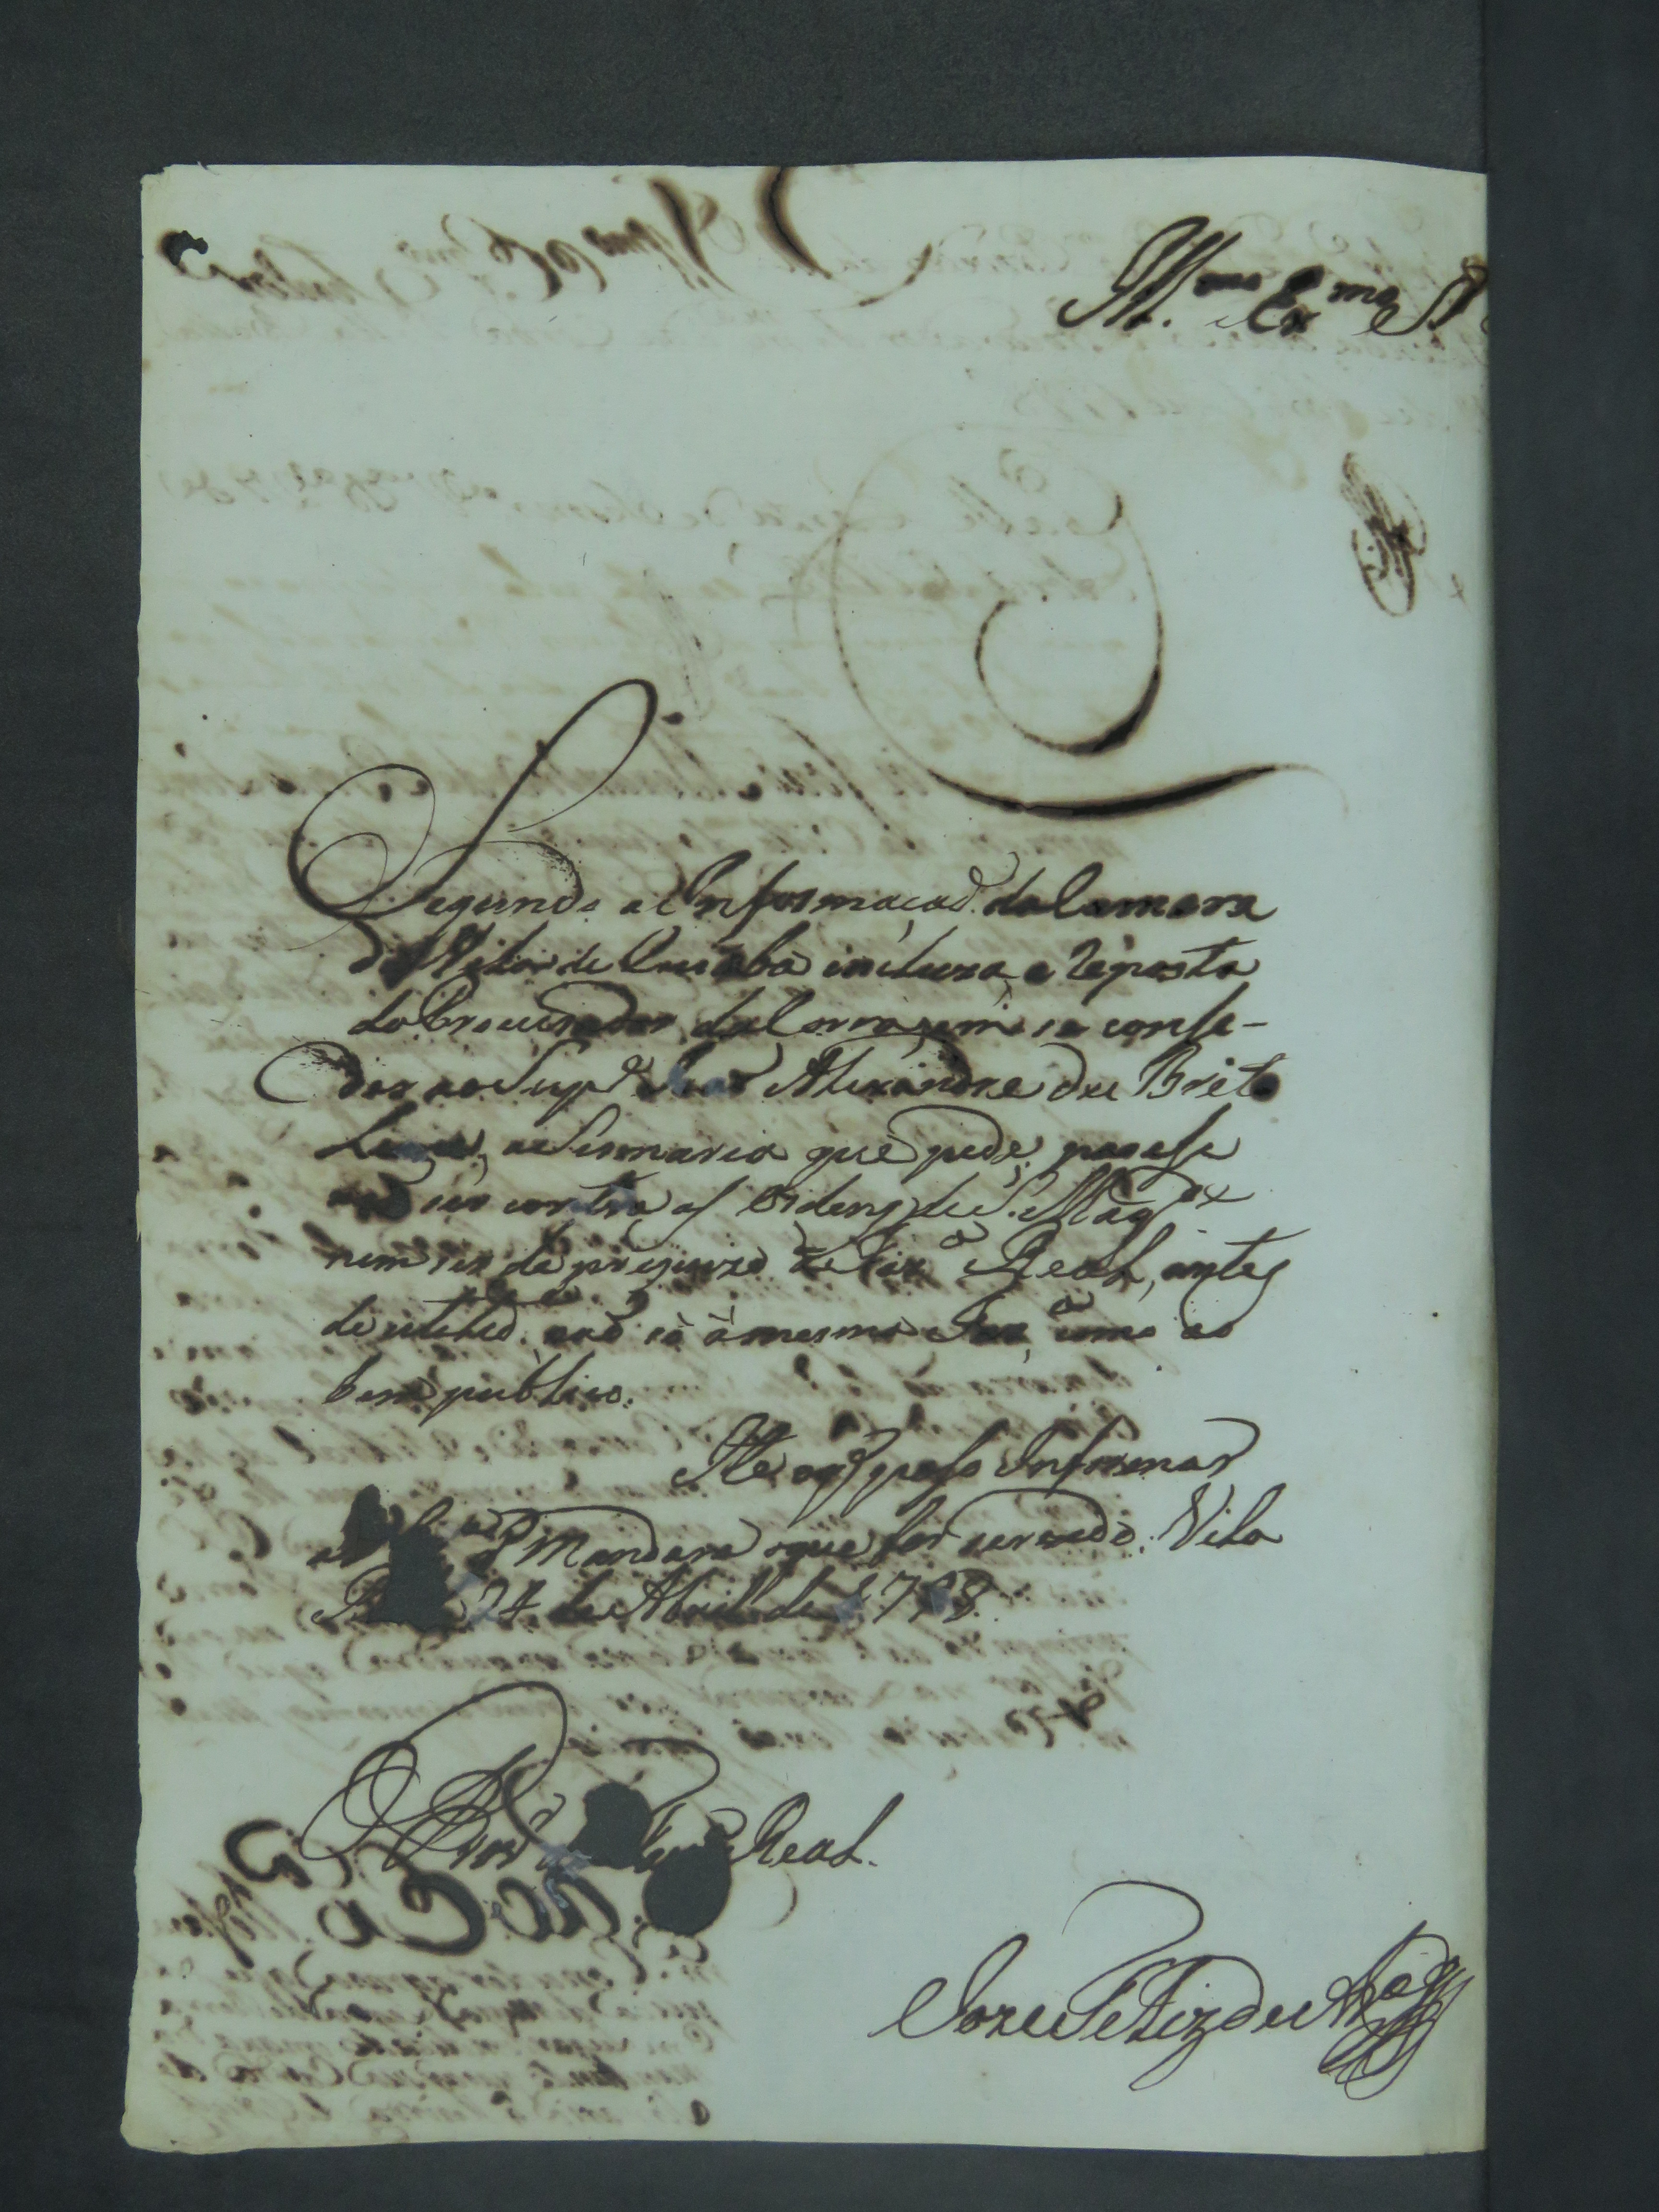 Ill.mo e Ex.mo S.r
Segundo a Informaçaõ da Camara
da Vila de Cuiabá incluza, e Reposta
do Procurador della
der ao Sup.e Joaõ Alexandre de Brito
Leme, a Sesmaria que pede, pareſe
naõ ser contra aſ Ordenſ de S. Mag.e
nem ser de prejuizo à Faz.a Real, anteſ
de utilid.e naõ só à mesma Faz.a como ao
bem publico.
He oq̃ poſso Informar
a V. Ex.a q̃ Mandara oque for servido. Vila
B 24 de Abril de 17 8.
Prov.or da Faz.a Real.
Joze